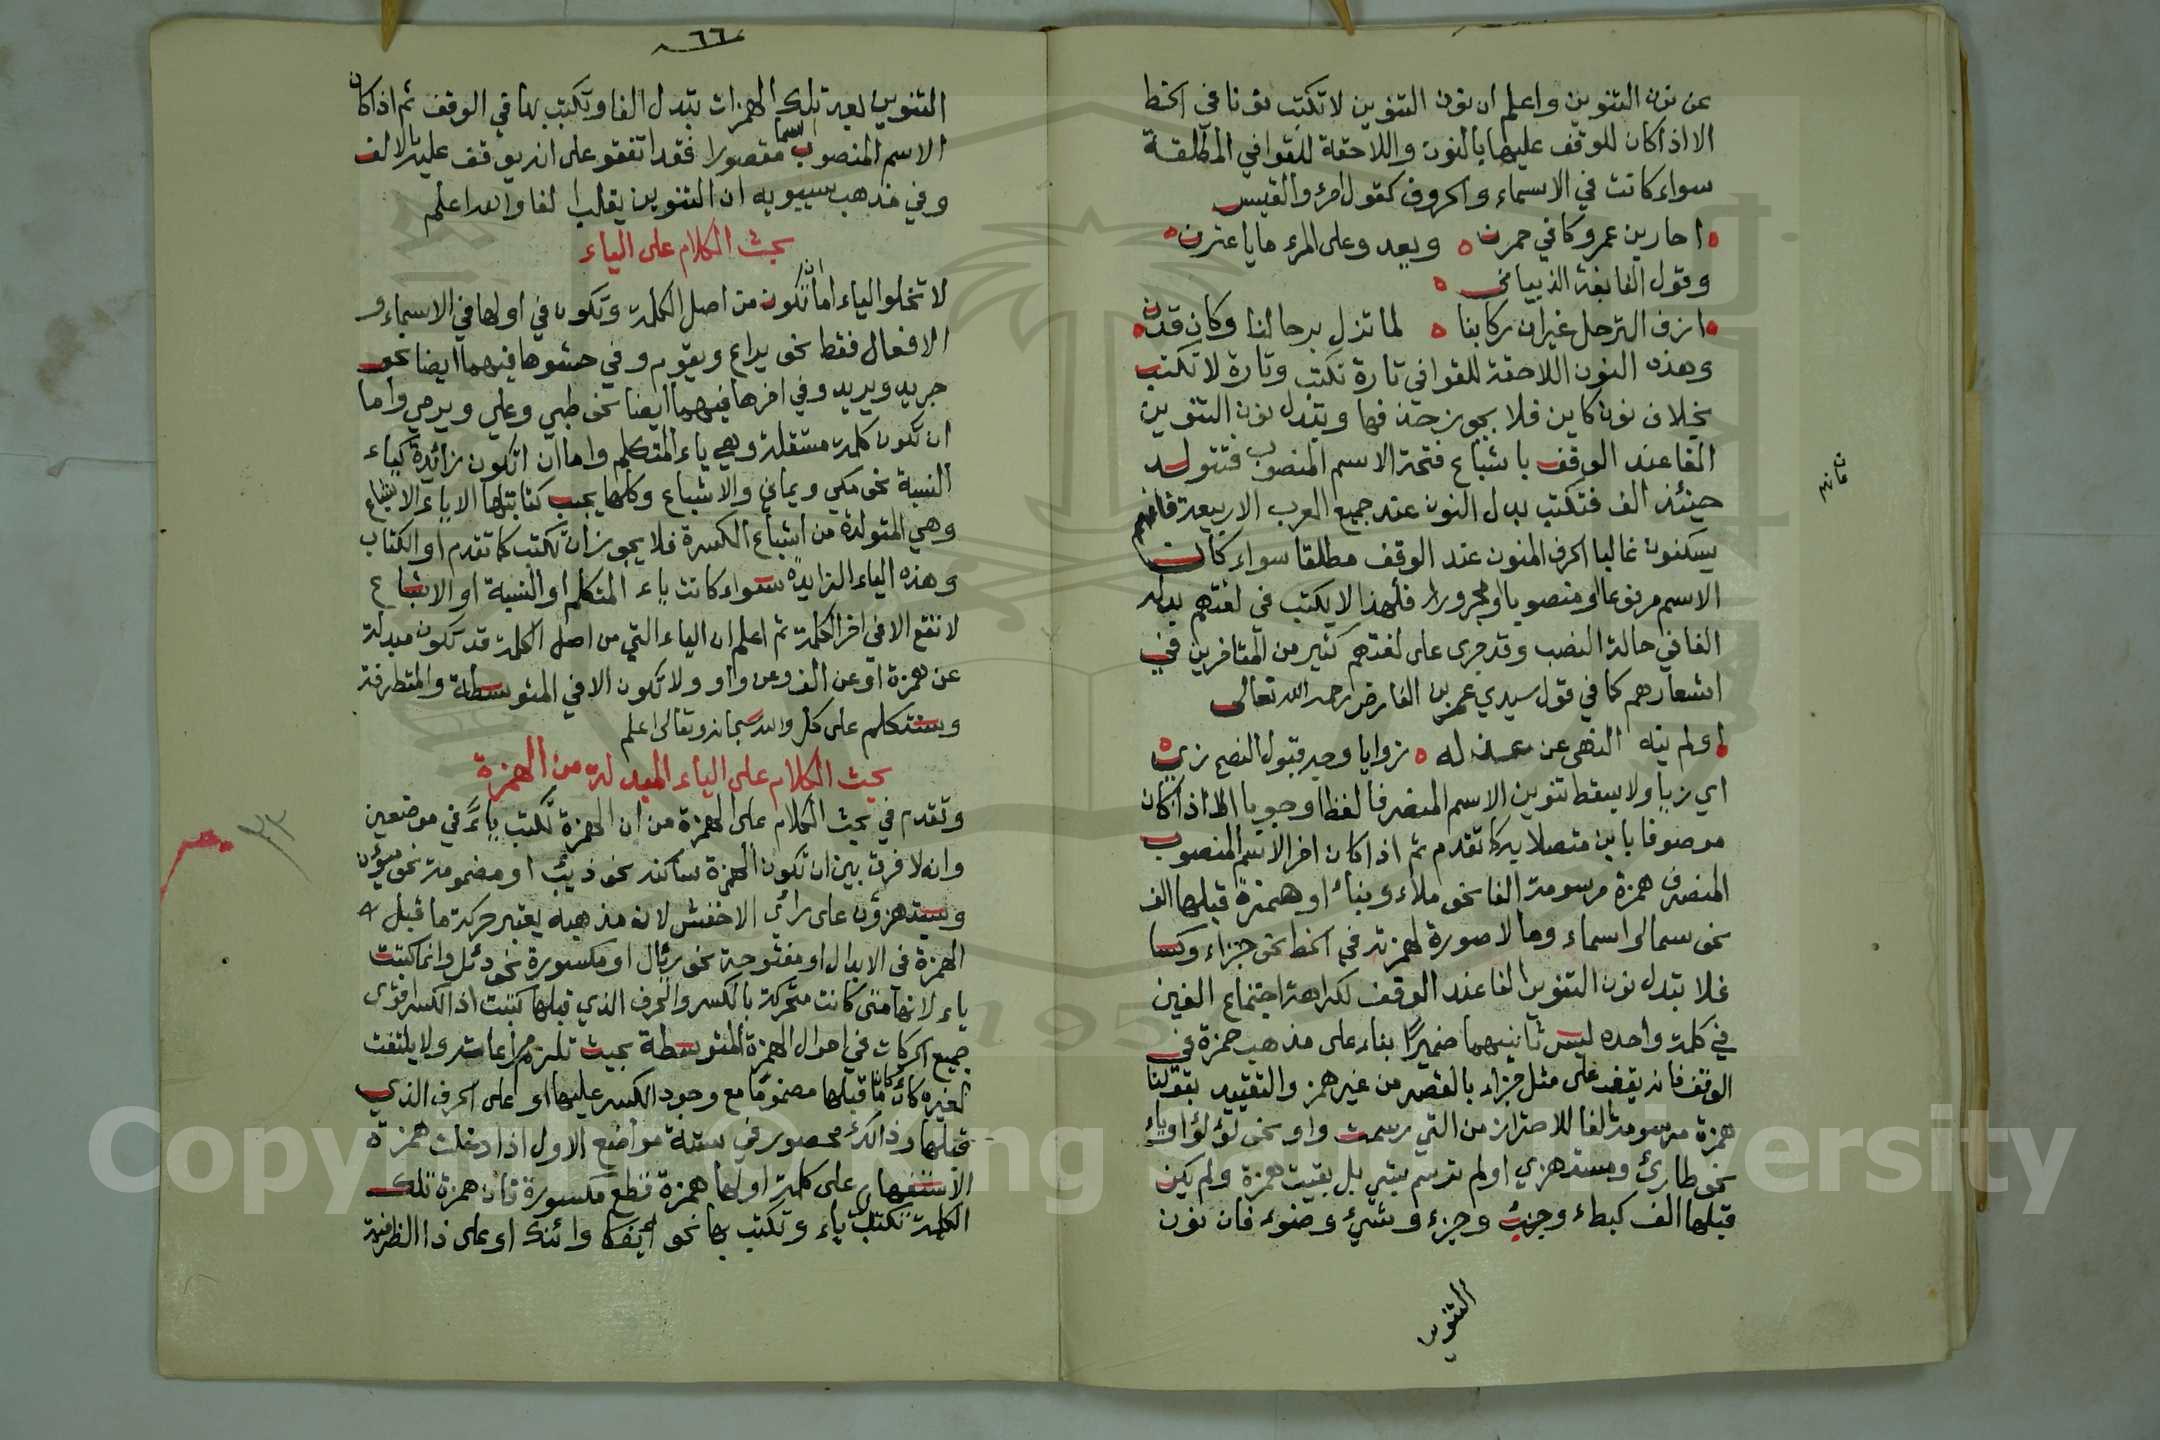 عن نون التنوين واعلم ان نون التنوين لا تكتب نونا في الخط
الا اذا كان للوقف عليها بالنون واللاحقة للقوافي المطلقة
سواء كانت في الاسماء والحروف كقول امرؤ القيس
احار بن عمرو كاني خمرن ويعدو على المرء ما ياءتمرن
وقول النابغة الذبياني
ازف الترحل غير ان ركابنا لما تزل برحالنا وكان قدن
وهذه النون اللاحقة للقوافي تارة تكتب وتارة لا تكتب
بخلاف نون كاين فلا يجوز حذفها وتبدل نون التنوين
الفا عند الوقف باشباع فتحة الاسم المنصوب فتتولد
حينئذ الف فتكتب بدل النون عند جميع العرب الا ربيعة فانهم
يسكنون غالبا الحرف المنون عند الوقف مطلقا سواء كان
الاسم مرفوعا او منصوبا او مجرورا فلهذا لا يكتب في لغتهم بدله
الفا في حالة النصب وقد جرى على لغتهم كثير من المتاخرين في
اشعارهم كما في قول سيدي عمر بن الفارض رحمه الله تعالى
اولم ينه النهى عن عذله زوايا وجه قبول النصح زي
اي زيا ولا يسقط تنوين الاسم المنصرف لفظا وجوبا الا اذا كان
موصوفا بابن متصلا به كما تقدم ثم اذا كان اخر الاسم المنصوب
المنصرف همزة مرسومة الفا نحو ملاء ونباء او همزة قبلها الف
نحو سما لواسماء وما لا صورة لهمزته في الخط نحو جزاء وكسا
فلا تبدل نون التنوين الفا عند الوقف لكراهة اجتماع الفين
في كلمة واحده ليس ثانيهما ضميرا بناء على مذهب حمزة في
الوقف فانه يقف على مثل جزاء بالقصر من غير همز والتقييد بقولنا
همزة مرسومة الفا للاحتراز من التي رسمت واو نحو لؤلؤ او ياء
نحو طارئ ومستهزي او لم ترسم بشي بل بقيت همزة ولم يكن
قبلها الف كبطاء وجزء وجزء وشيء وضوء فان نون
التنوين
فانهم
٦٦
التنوين بعد تلك الهمزات تبدل الفا وتكتب لها في الوقف ثم اذا كان
الاسم المنصوب اسما مقصورا فقد اتفقو على انه يوقف عليه بالالف
وفي مذهب سيبويه ان التنوين يقلب الفا والله اعلم
بحث الكلام على الياء
لا تخلوا الياء اما ان تكون من اصل الكلمة وتكون في اولها في الاسماء و
الافعال فقط نحو يراع ويقوم وفي حشوها فيهما ايضا نحو
جريد ويريد وفي اخرها فيهما ايضا نحو ظبي وعلي ويرمي واما
ان تكون كلمة مستقلة وهي ياء المتكلم واما ان تكون زائدة كياء
النسبة نحو مكي ويماني والاشباع وكلها يجب كتابتها الا ياء الاشباع
وهي المتولدة من اشباع الكسرة فلا يجوز ان تكتب كما تقدم او الكتاب
وهذه الياء الزايدة سواء كانت ياء المتكلم او النسبة او الاشباع
لا تقع الا في اخر الكلمة ثم اعلم ان الياء التي من اصل الكلمة قد تكون مبدلة
عن همزة او عن الف وعن واو ولا تكون الا في المتوسطة والمتطرفة
وسنتكلم على كل والله سبحانه وتعالى اعلم
بحث الكلام على الياء المبدلة من الهمزة
وتقدم في بحث الكلام على الهمزة من ان الهمزة تكتب ياء في موضعين
وانه لا فرق بين ان تكون الهمزة ساكنة نحو ذئب او مضمومة نحو
وسيتهزؤن على رأي الاخفش لان مذهبه يعتبر حركة ما قبل
الهمزة في الابدال او مفتوحة نحو رئال او مكسورة نحو دئل وانما كتبت
ياء لانها متى كانت متحركة بالكسر والحرف الذي قبلها كتبت اذ الكسر قوى
جميع الحركات في احوال الهمزة المتوسطة بحيث تلزم مراعاته ولا يلتفت
لغيره كان ما قبلها مضموما مع وجود الكسر عليها او على الحرف الذي
قبلها وذلك محصور في ستة مواضع الاول اذا دخلت همزة
الاستفهام على كلمة اولها همزة قطع مكسورة فان همزة تلك
الكلمة تكتب ياء وتكتب بها نحو أئفكا وائنك او على ذا الظرفية